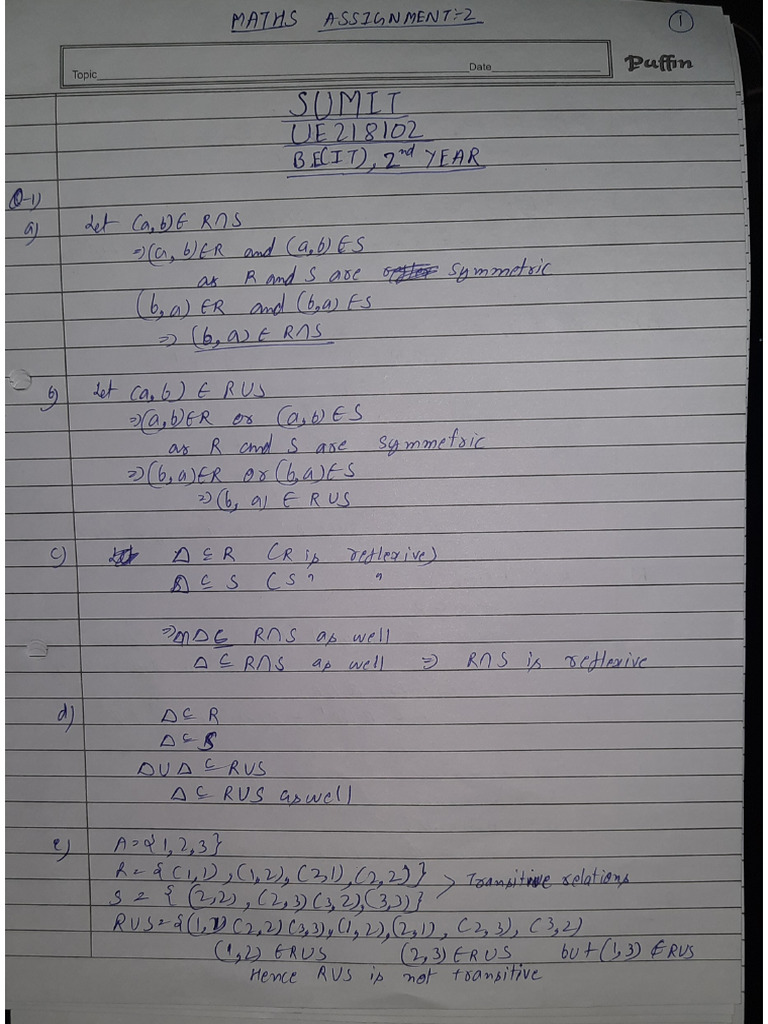 MATHS ASSIGNMENT:-2
1
Topic Date Puffin
SUMIT
UE218102
BE(IT), 2nd YEAR
Q-1)
a) Let (a,b) ∈ R∩S
⇒(a, b)∈R and (a,b) ∈ S
as R and S are symmetric
(b,a) ∈R and (b,a) ∈S
⇒ (b, a) ∈ R∩S
b) Let (a,b) ∈ RUS
⇒(a,b)∈R or (a,b) ∈ S
as R and S are symmetric
⇒(b,a)∈R or (b,a)∈S
⇒(b, a) ∈ RUS
c) Δ ⊆ R (R is reflexive)
Δ ⊆ S (S " "
⇒ Δ ⊆ R∩S as well
Δ ⊆ R∩S as well ⇒ R∩S is reflexive
d) Δ⊆ R
Δ⊆ S
ΔUΔ ⊆ RUS
Δ ⊆ RUS aswell
e) A={1,2,3}
R={(1,1),(1,2),(2,1),(2,2)}
S = { (2,2), (2,3)(3,2),(3,3)} > Transitive relations
RUS={(1,1)(2,2)(3,3),(1,2),(2,1), (2,3), (3,2)
(1,2) ∈RUS (2,3)∈RUS but (1,3) ∉RUS
Hence RUS is not transitive